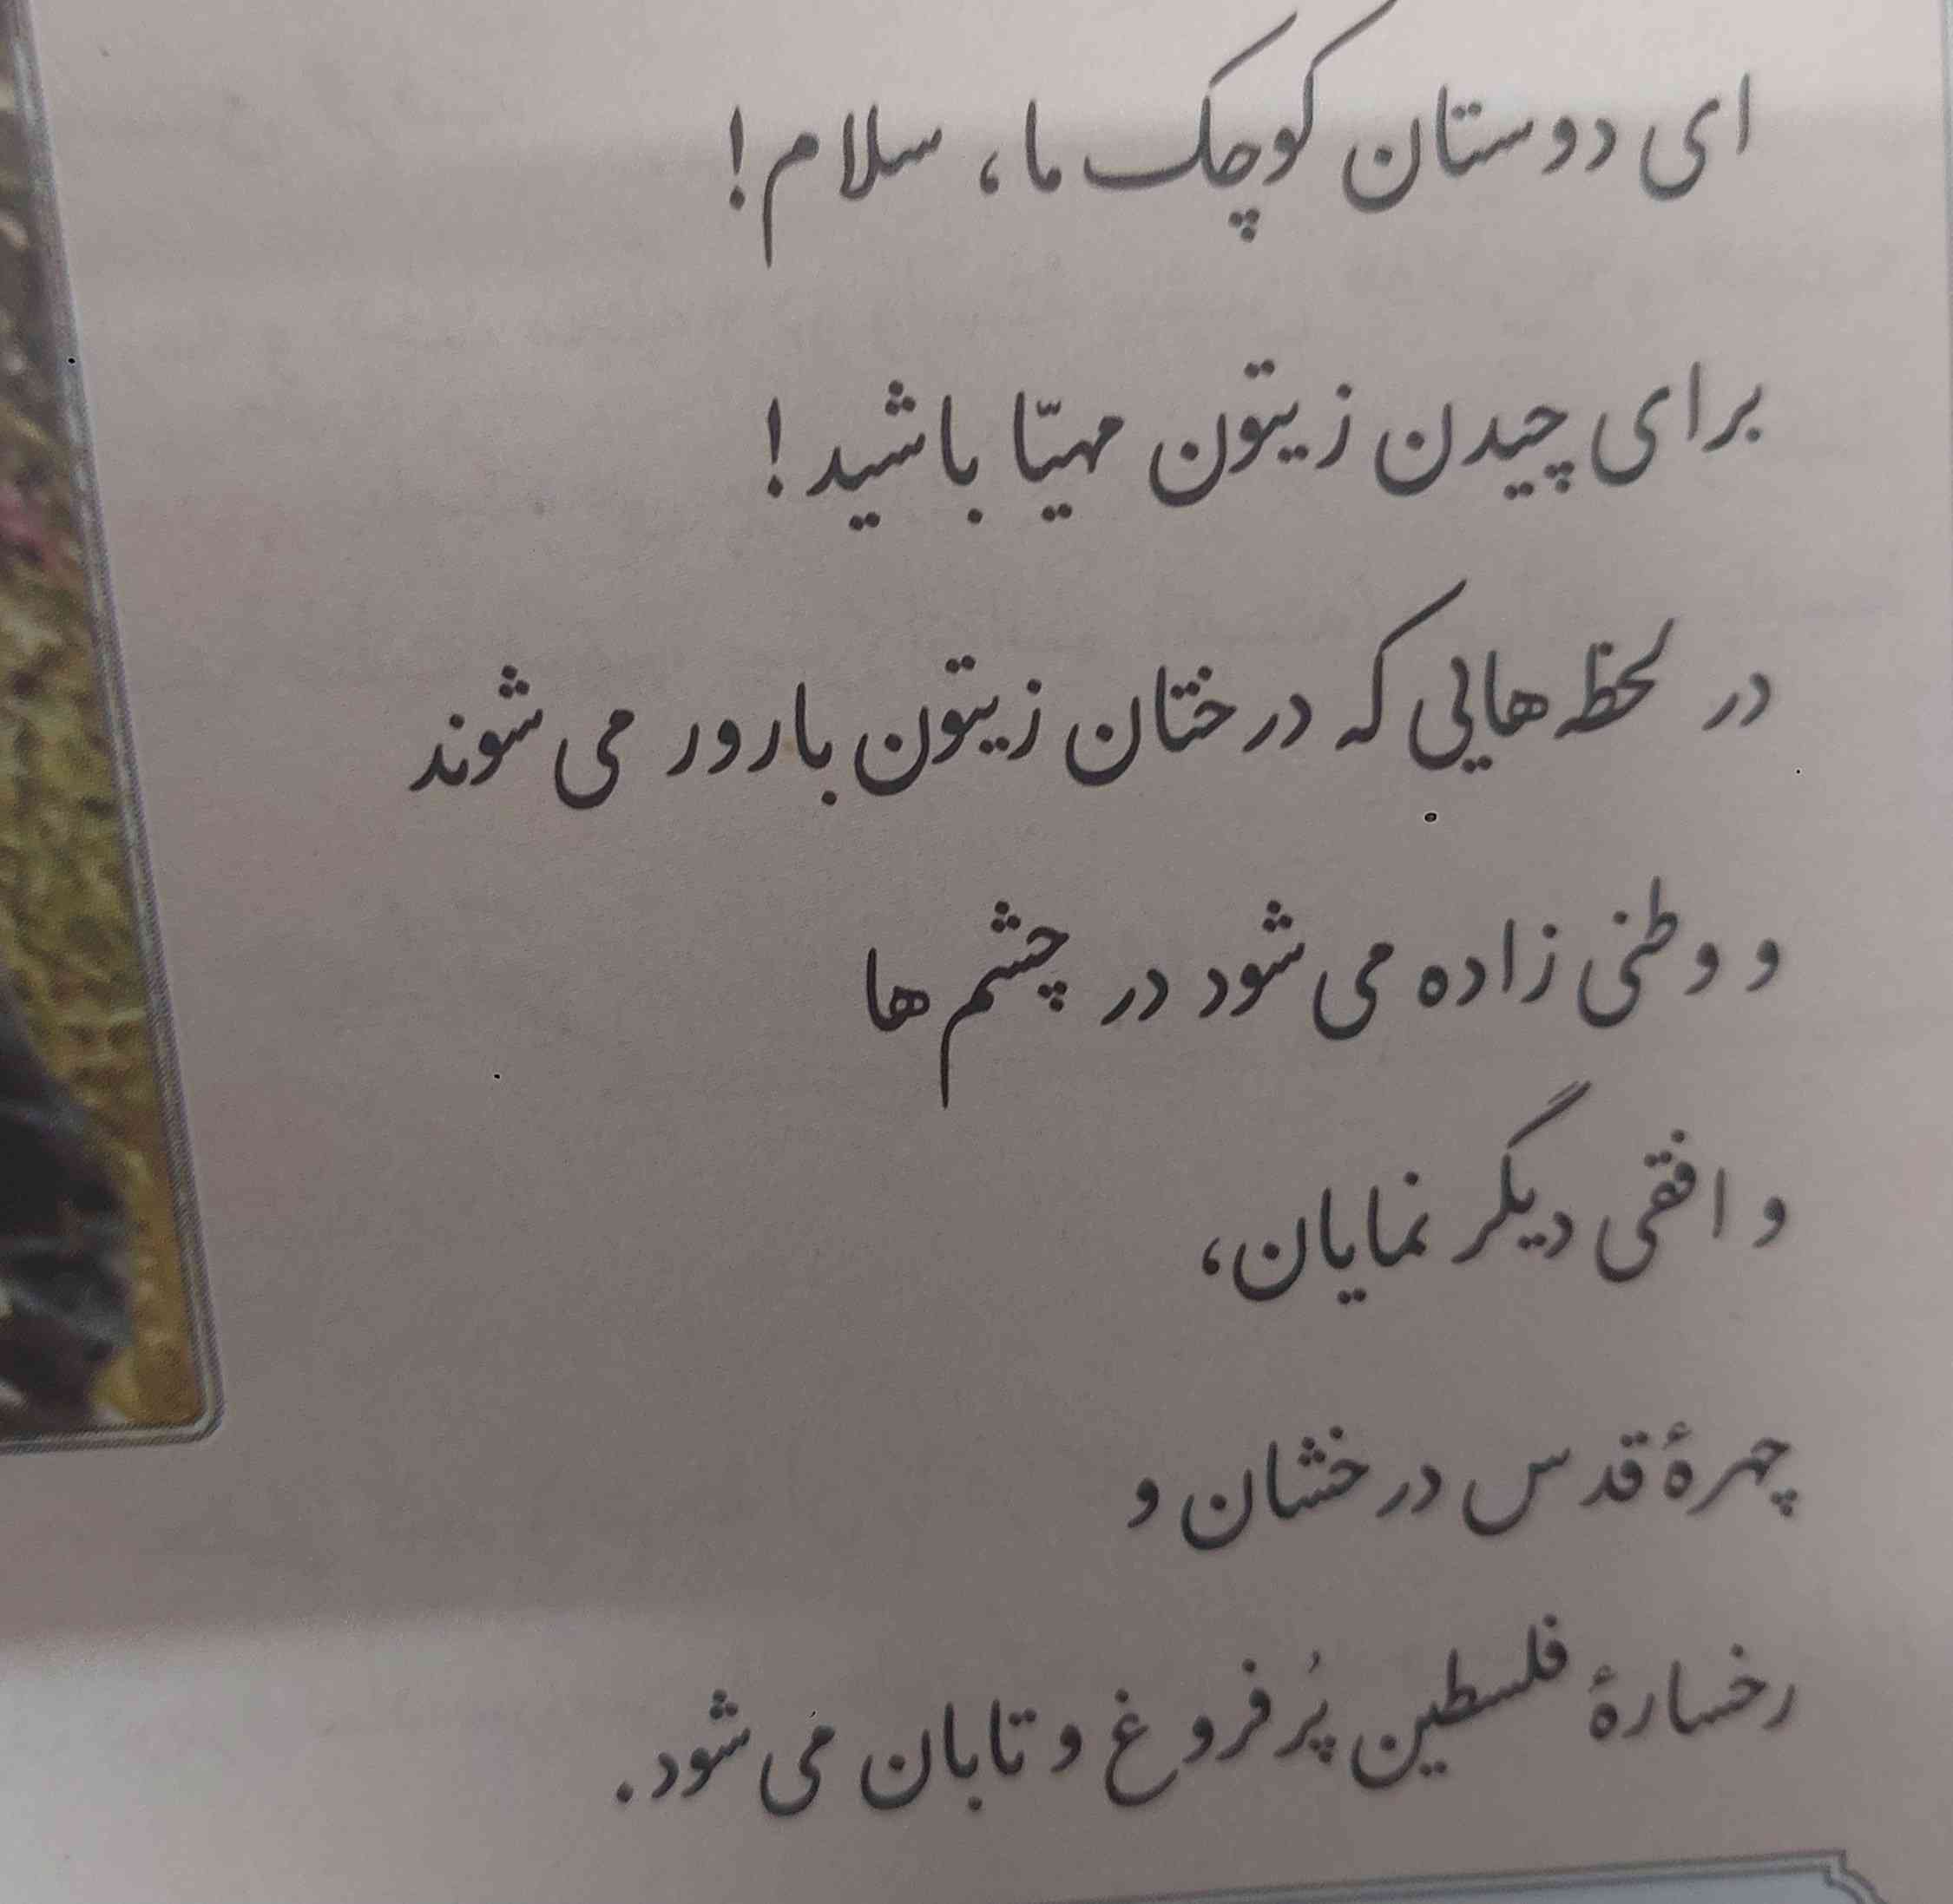 ای دوستان کوچک ما، سلام!
برای چیدن زیتون مهیّا باشید!
در لحظه‌هایی که درختان زیتون بارور می‌شوند
و وطنی زاده می‌شود در چشم‌ها
و افقی دیگر نمایان،
چهرهٔ قدس درخشان و
رخسارهٔ فلسطین پُرفروغ و تابان می‌شود.